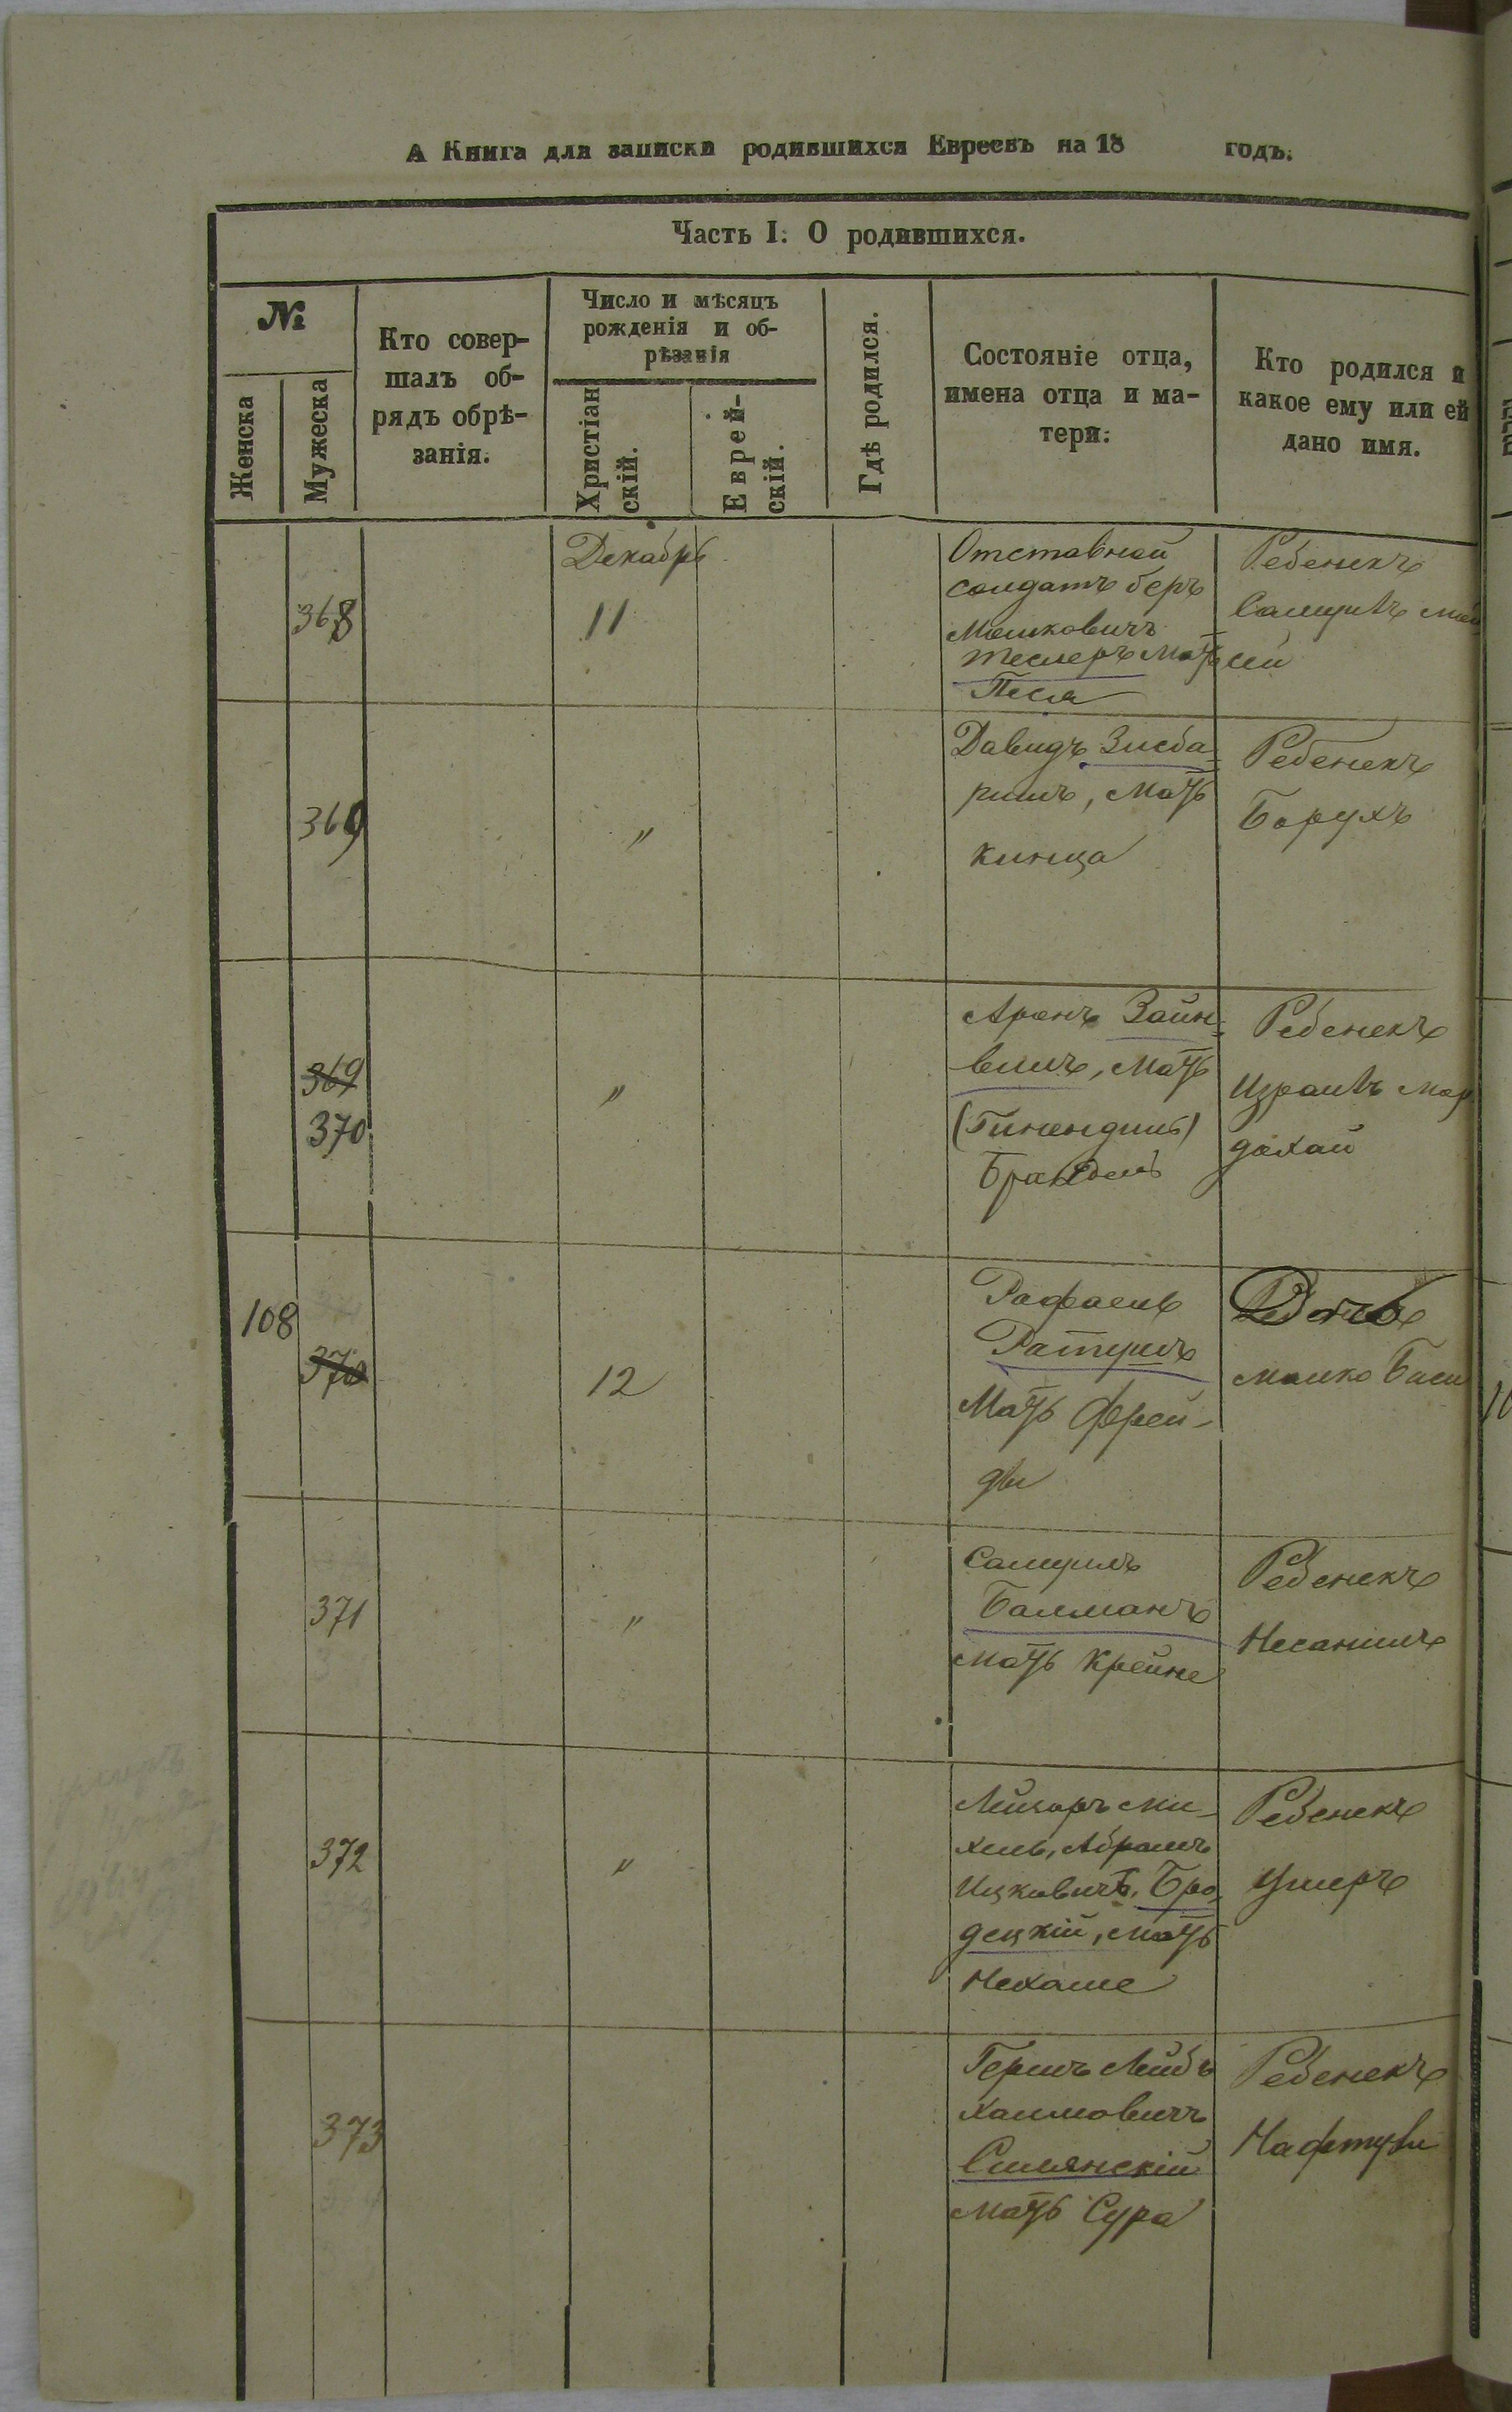 А Книга для записки родившихся Евреевъ на 18 годъ.
Часть I. О родившихся.
№
Женска
Мужеска
Кто совер-
шалъ об-
рядъ обрѣ-
занія.
Число и мѣсяцъ
рожденія и об-
рѣзанія
Христіан
скій.
Еврей-
скій.
Гдѣ родился.
Состояніе отца,
имена отца и ма-
тери.
Кто родился и
какое ему или ей
дано имя.
368
Декабрь
11
Отставной
солдатъ Беръ
Мошковичъ
Теслеръ мать
Песя
Ребенекъ
Самуилъ Мой
сей
369
"
Давидъ Зисба
мать
Кинца
Ребенекъ
Борухъ
369
370
"
Аронъ Зайн-
вилъ, мать
(Гинендиль)
Брандель
Ребенекъ
Израиль Мор
дохай
108
370
12
Рафаель
Ратушъ
Мать Фрей-
ды
Дочь
Малко Баси
371
"
Самуилъ
Балманъ
мать Крейне
Ребенекъ
372
"
Лейзоръ Ми-
хель, Абрамъ
Ицковичъ, Бро
децкій, мать
Нехаме
Ребенекъ
Ушеръ
373
Гершъ Лейбъ
Хаимовичъ
Смилянскій
мать Сура
Ребенекъ
Нафтули